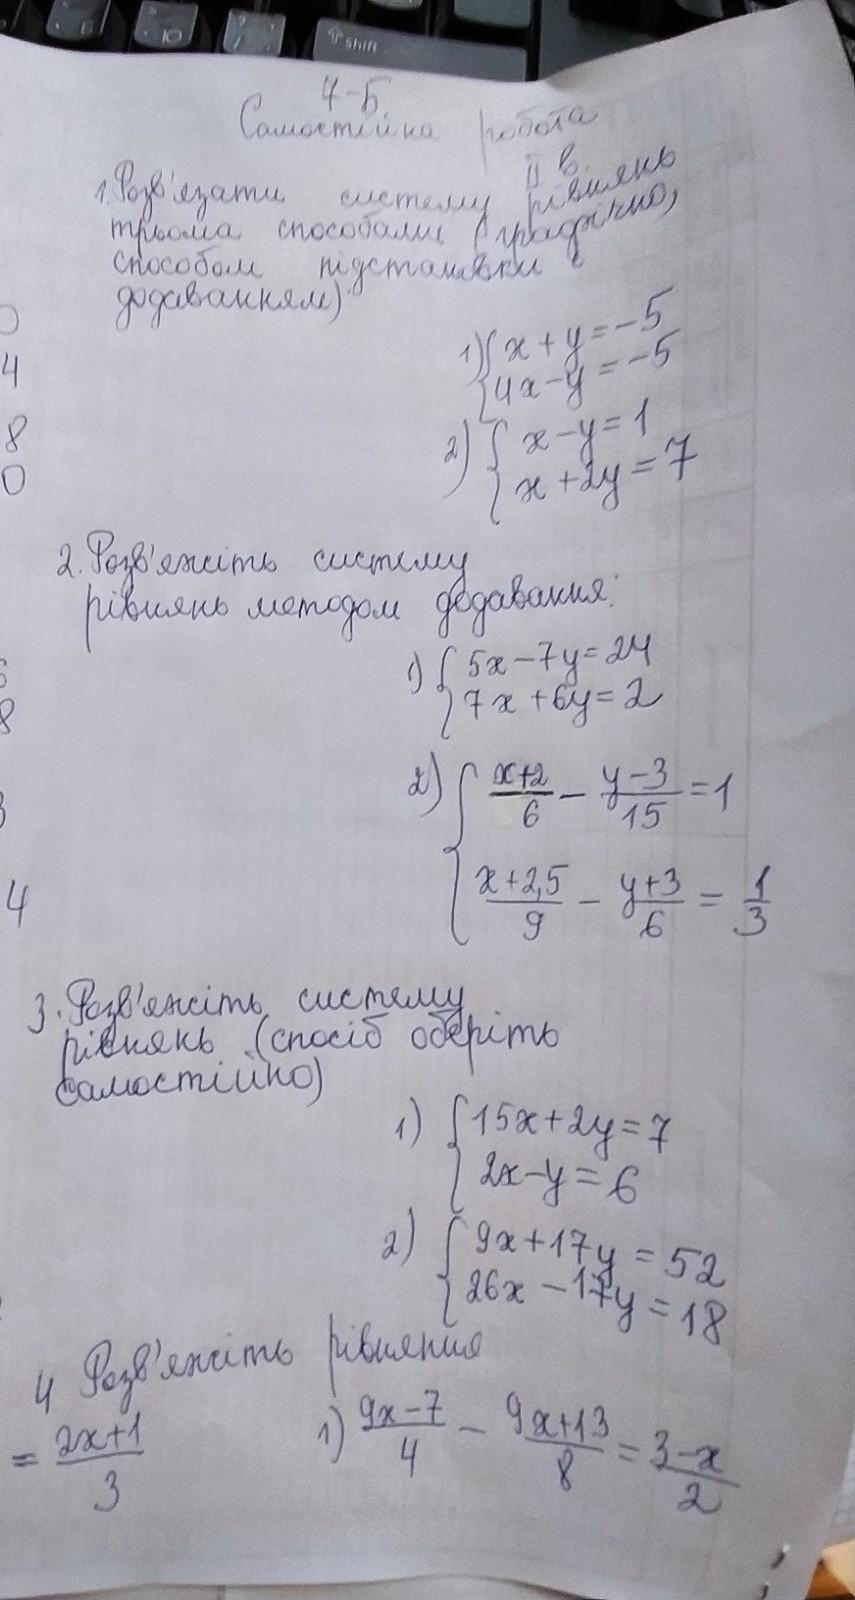 Shift
7-Б
Самостійна робота
ІІ в.
1. Розв'язати систему рівнянь
трьома способами (графічно,
способом підстановки і
додаванням)
1) { x + y = -5
4x - y = -5
2) { x - y = 1
x + 2y = 7
2. Розв'яжіть систему
рівнянь методом додавання:
1) { 5x - 7y = 24
7x + 6y = 2
2) { (x+2)/6 - (y-3)/15 = 1
(x+2,5)/9 - (y+3)/6 = 1/3
3. Розв'яжіть систему
рівнянь (спосіб оберіть
самостійно)
1) { 15x + 2y = 7
2x - y = 6
2) { 9x + 17y = 52
26x - 17y = 18
4 Розв'яжіть рівняння
= (2x+1)/3
1) (9x-7)/4 - (9x+13)/8 = (3-x)/2